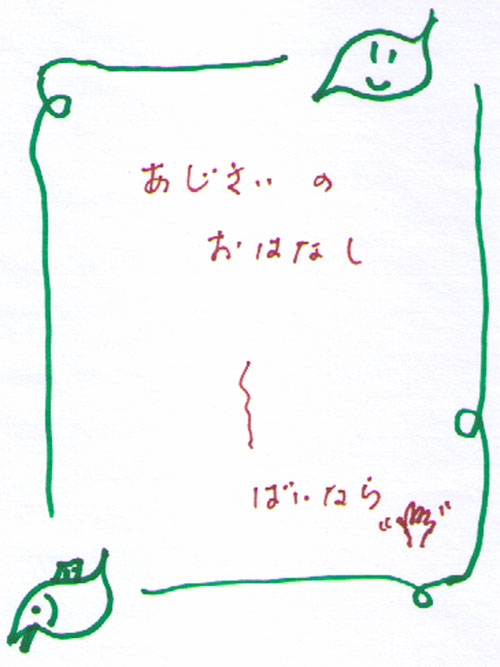 あじさい の
おはなし
ばいなら